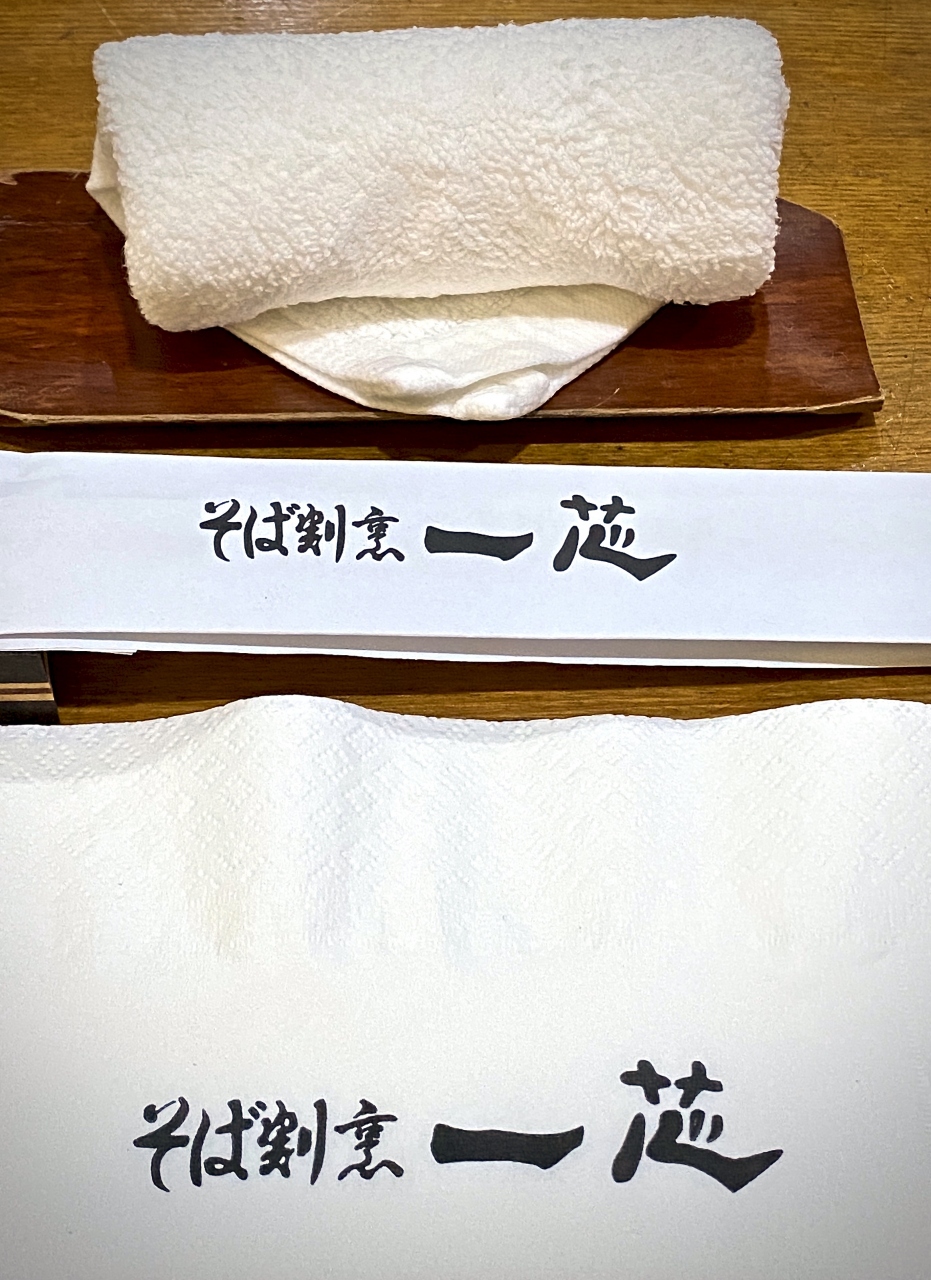 そば割烹 一芯
そば割烹 一芯